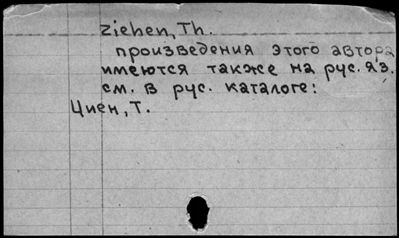 Ziehen, Th.
произведения этого автора
имеются также на рус. яз.
см. в рус. каталоге:
Циен, Т.